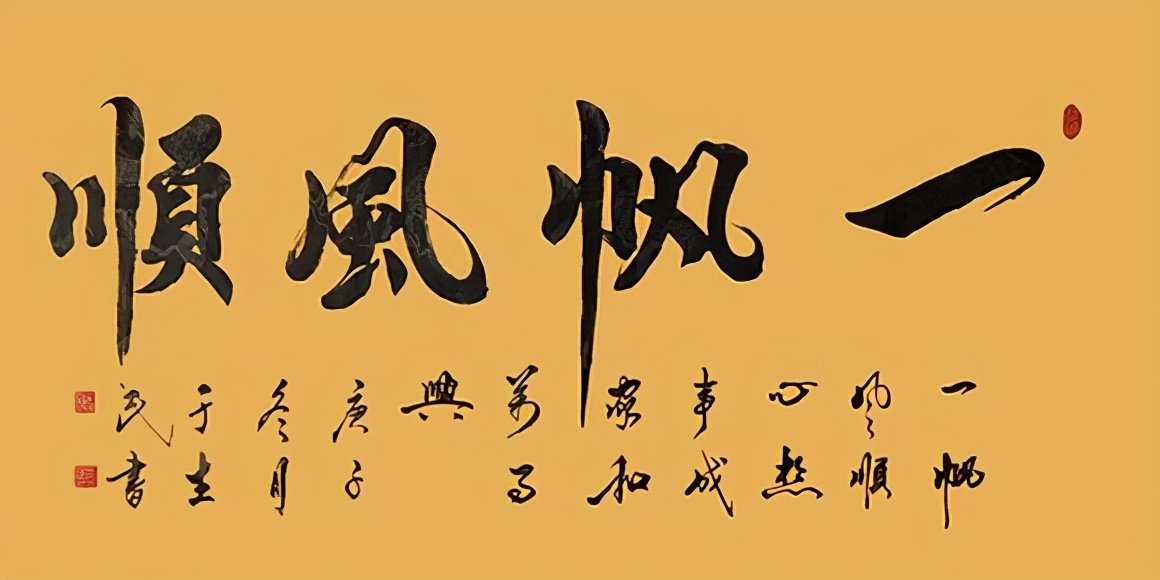 一帆風順
一帆
风順
心想
事成
家和
萬事
興
庚子
冬月
于生
民書